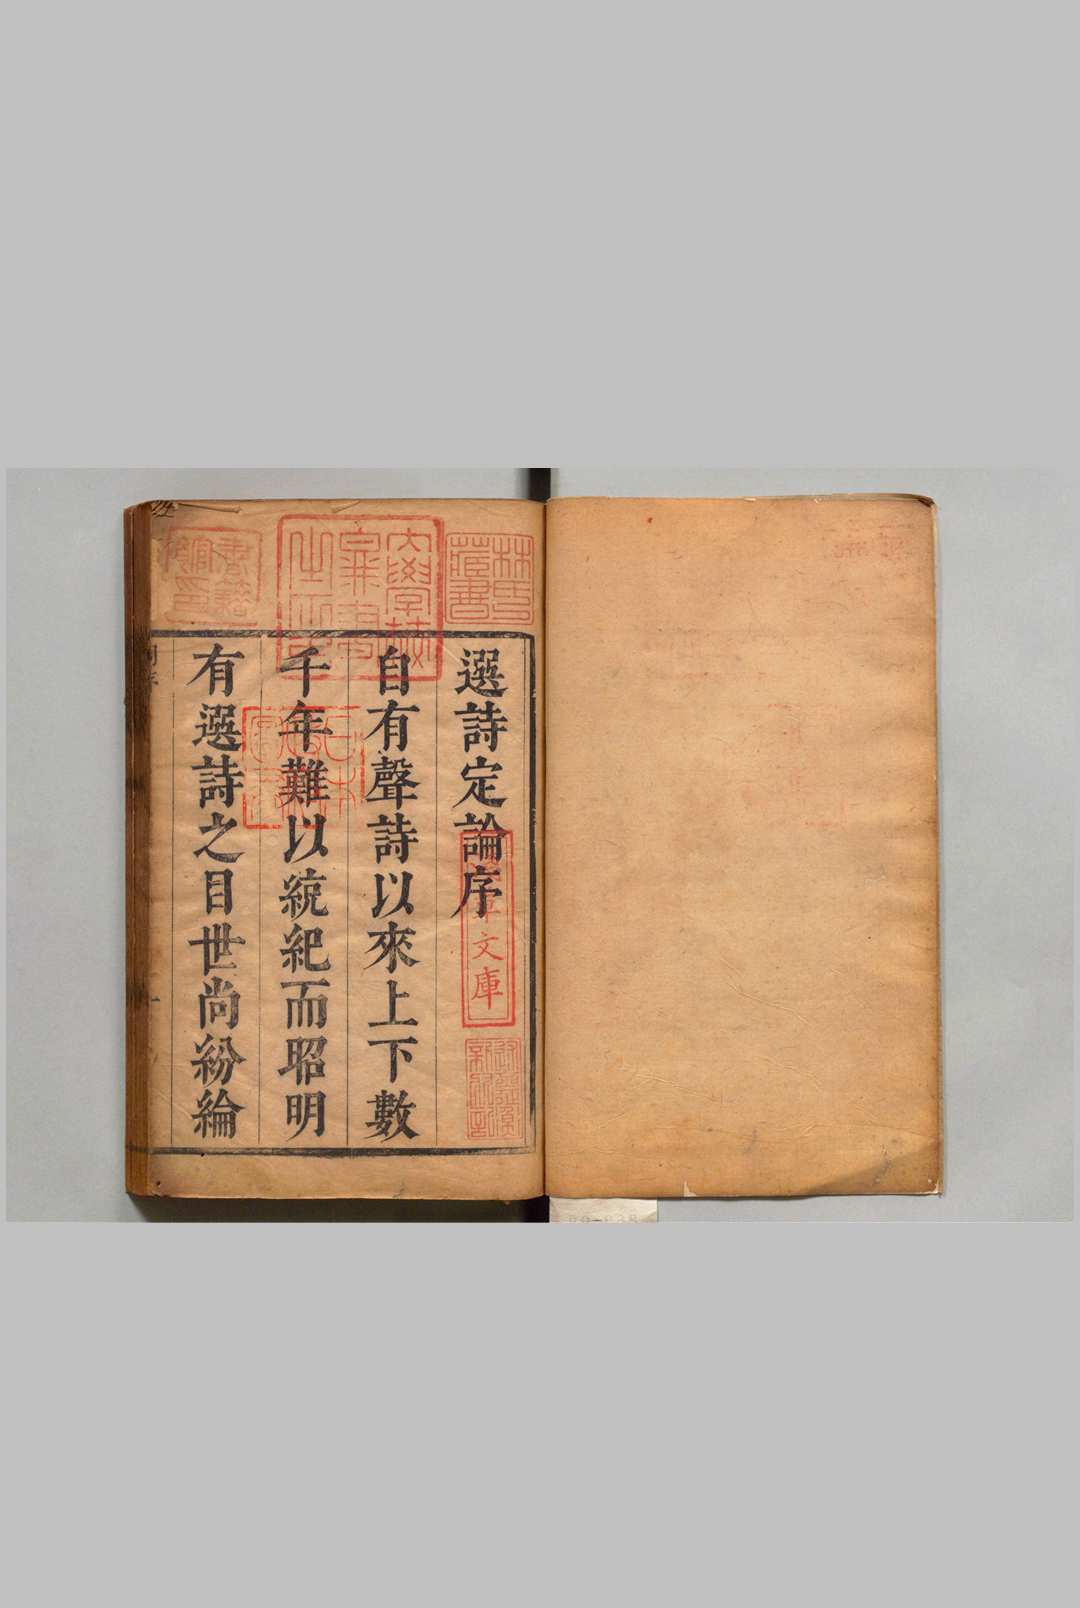 選詩定論序
自有聲詩以來上下數
千年難以統紀而昭明
有選詩之目世尚紛綸
林氏
藏書
淺草文庫
日本
政府
圖書